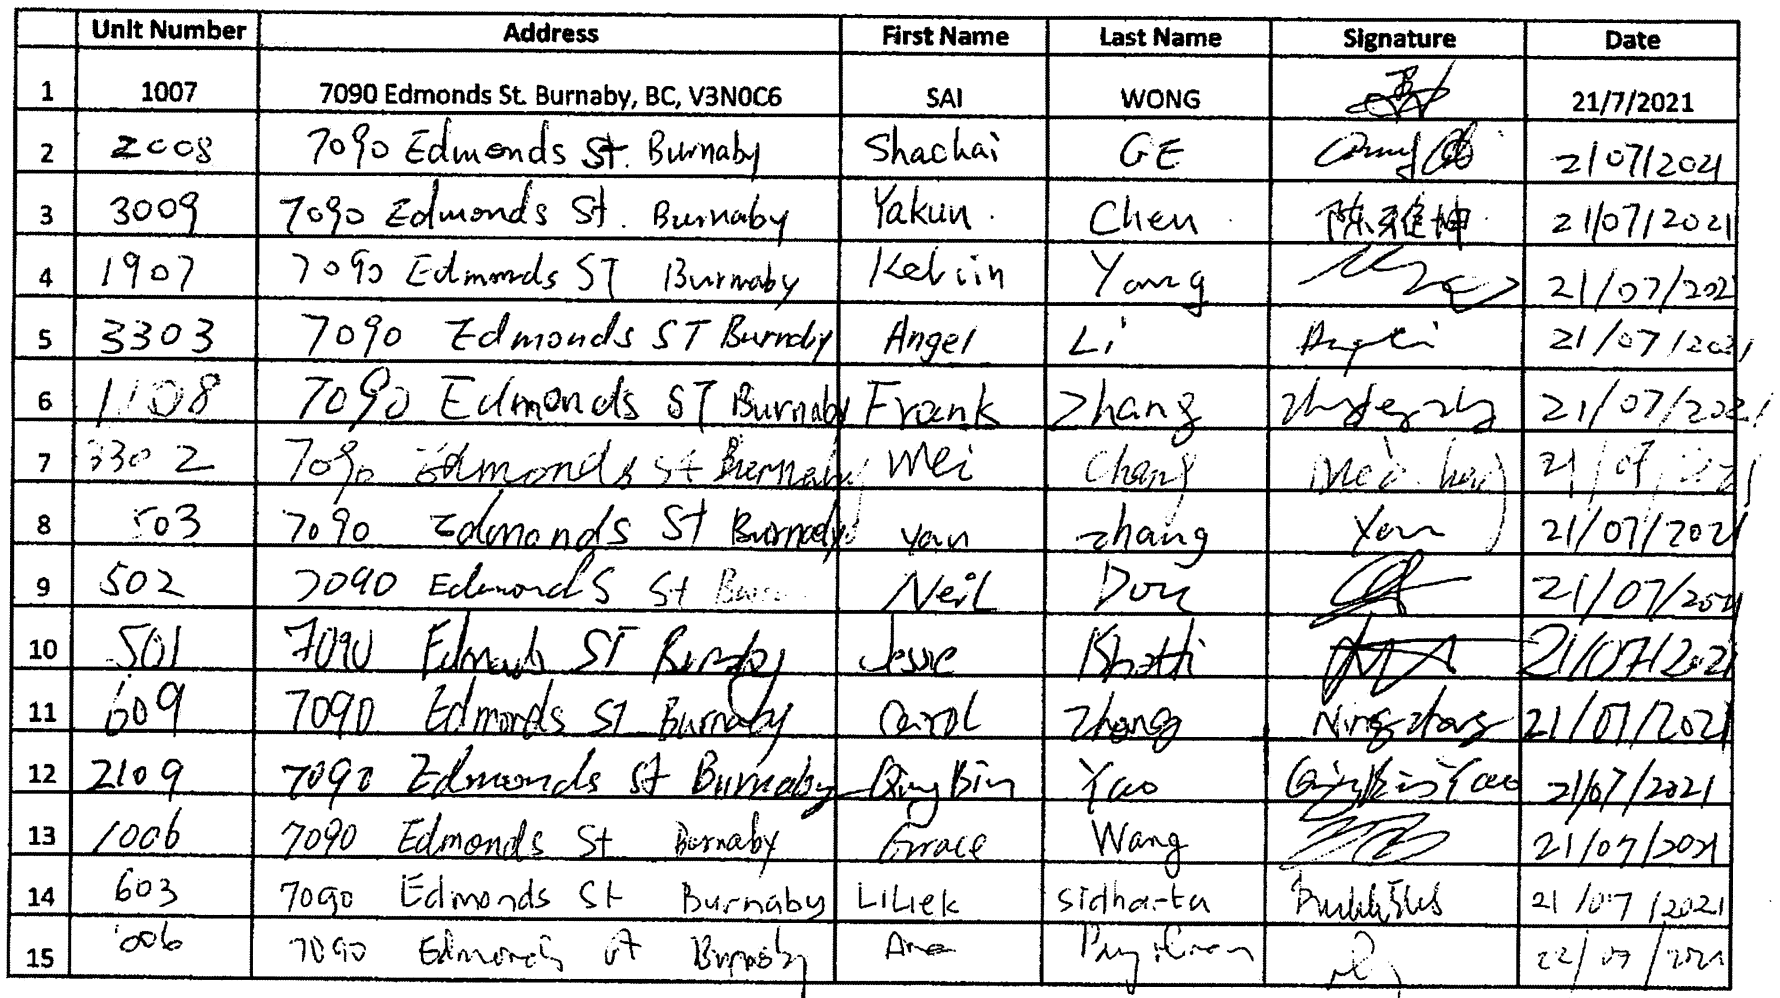 Unit Number Address First Name Last Name Signature Date
1 1007 7090 Edmonds St. Burnaby, BC, V3N0C6 SAI WONG 21/7/2021
2 2008 7090 Edmonds St. Burnaby Shachai GE 21/07/2021
3 3009 7090 Edmonds St. Burnaby Yakun Chen 陈雅坤 21/07/2021
4 1907 7090 Edmonds ST Burnaby Kelvin Yang 21/07/2021
5 3303 7090 Edmonds ST Burnaby Angel Li 21/07/2021
6 1108 7090 Edmonds ST Burnaby Frank Zhang 21/07/2021
7 3302 7090 Edmonds St Burnaby Mei 21/07/2021
8 503 7090 Edmonds St Burnaby Yan Zhang Yan 21/07/2021
9 502 7090 Edmonds St Neil 21/07/2021
10 501 7090 Edmonds ST Burnaby Jesse Bhatti 21/07/2021
11 609 7090 Edmonds ST Burnaby Carol Zhang Ning Zhang 21/07/2021
12 2109 7090 Edmonds St Burnaby QingBin Yao QingBin Yao 21/07/2021
13 1006 7090 Edmonds St Burnaby Grace Wang 21/07/2021
14 603 7090 Edmonds St Burnaby LiLiek Sidharta 21/07/2021
15 006 7090 Edmonds St Burnaby 22/07/2021